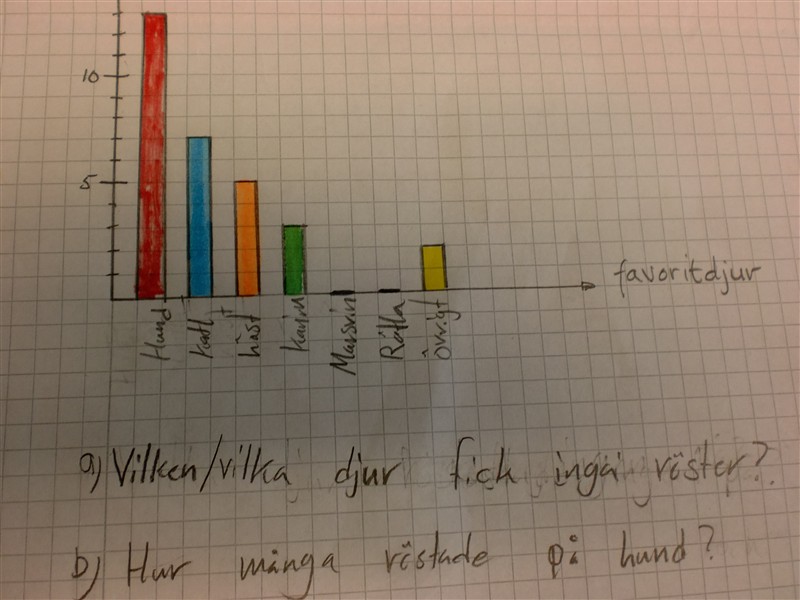 10
5
favoritdjur
Hund
katt
häst
kanin
Marsvin
Råtta
övrigt
a) Vilken/vilka djur fick inga röster?
b) Hur många röstade på hund?